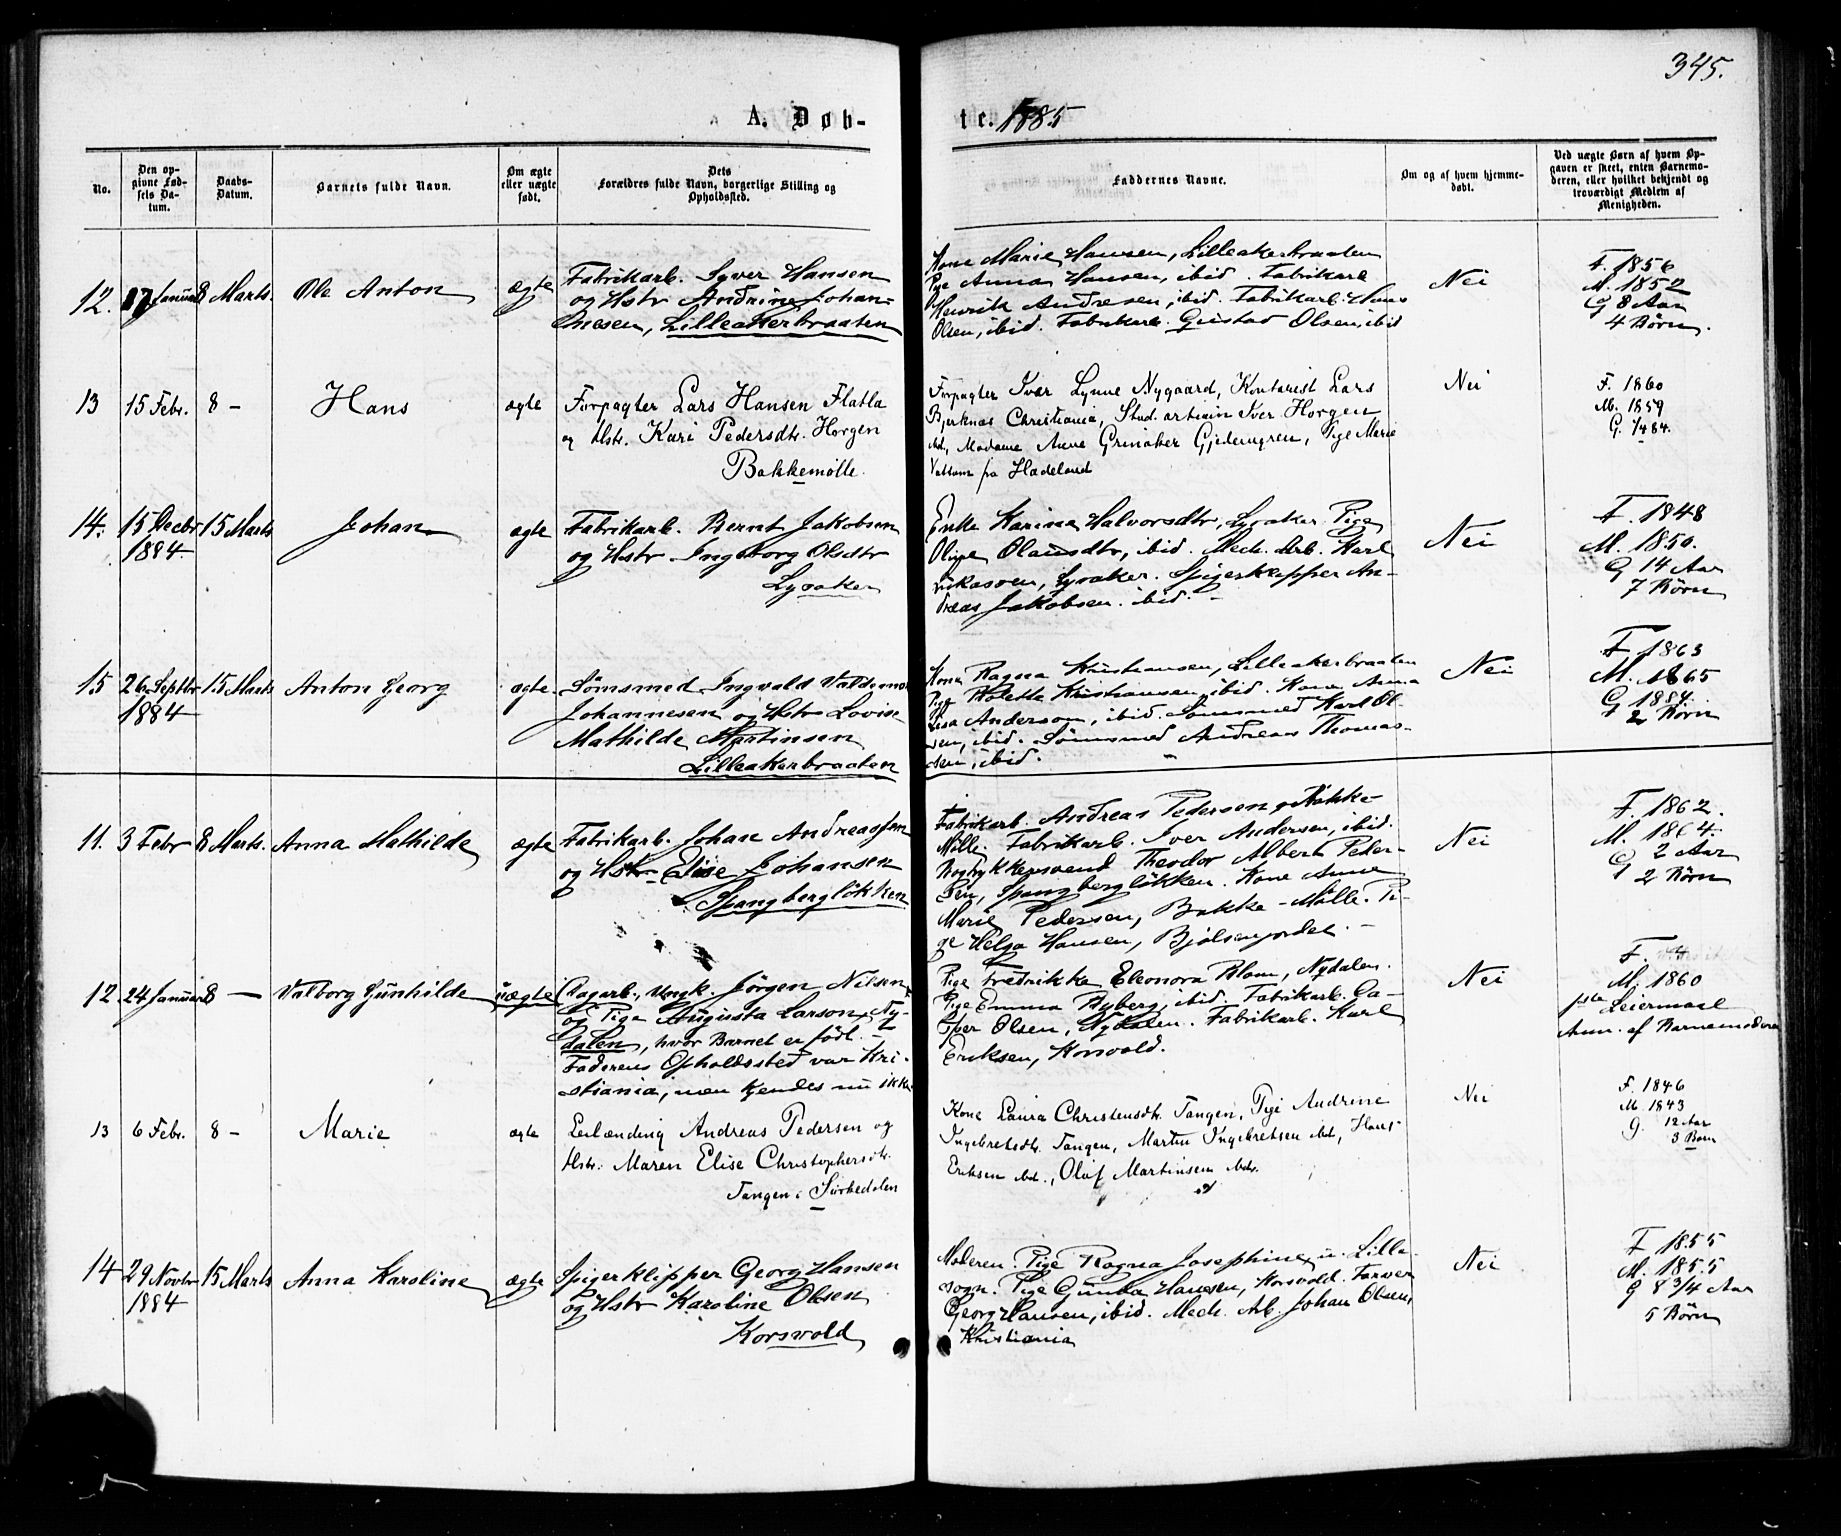 345.
A. Døb-
te. 1885
No.
Den op-
givne Fød-
sels Da-
tum.
Daabs-
Datum.
Barnets fulde Navn.
Om ægte
eller uægte
født.
Dets
Forældres fulde Navn, borgerlige Stilling og
Opholdssted.
Faddernes Navne.
Om og af hvem hjemme-
døbt.
Ved uægte Børn af hvem Op-
gaven er skeet, enten Barnemo-
deren, eller hvilket bekjendt og
troværdigt Medlem af
Menigheden.
12. 17 Januar 8 Marts. Ole Anton ægte
Fabrikarb. Syver Hansen
og Hstr Andrine Johan-
nesen, Lilleakerbraaten
Kone Marie Hansen, Lilleakerbraaten
Pge Anna Hansen, ibid. Fabrikarb
Henrik Andresen, ibid. Fabrikarb. Hans
Olsen, ibid. Fabrikarb. Gustav Olsen, ibid
Nei
F. 1856
M. 1852
G 8 Aar
4 Børn.
13 15 Febr. 8 - Hans ægte
Forpagter Lars Hansen Flatla
og Hstr. Kari Pedersdtr. Horgen
Bakkemølle.
Forpagter Iver Lynne Nygaard, Kontorist Lars
Bjerknæs Christiania, Stud. artium Iver Horgen
ibd., Madame Anne Grinaker Gjedemyren, Pige Marie
fra Hadeland
Nei
F. 1860
M. 1859
G. 1/4 84.
14. 15 Decbr 15 Marts Johan ægte
1884
Fabrikarb. Bernt Jakobsen
og Hstr Ingeborg Olsdtr
Lysaker
Enke Karine Halvorsdtr, Lysaker. Pige
Oline Olausdtr, ibid. Mech. Arb. Karl
Lukassen, Lysaker. Spigerklipper An-
dreas Jakobsen. ibid. -
Nei
F. 1848
M. 1850.
G 14 Aar
7 Børn
15 26 Septbr 15 Marts Anton Georg ægte
1884
Sømsmed Ingvald Valdemar
Johannesen og Hstr Lovise
Mathilde Martinsen
Lilleakerbraaten
Kone Ragna Kristiansen, Lilleakerbraaten
Pige Kristiansen, ibid. Kone Anna
Lisa Anderson, ibid. Sømsmed Karl Ol-
sen, ibid. Sømsmed Andreas Thomas-
sen, ibid. -
Nei
F. 1863
M. 1865
G 1884.
2 Børn
11. 3 Febr 8 Marts. Anna Mathilde ægte
Fabrikarb. Johan Andreassen
og Hstr Elise Johansen
Spangbergløkken
Fabrikarb. Andreas Pedersen, Bakke-
Mølle. Fabrikarb. Iver Andersen, ibid.
Bogtrykkersvend Theodor Albert Peder-
sen, Spangbergløkken. Kone Anne
Marie Pedersen, Bakke-Mølle. Pi-
ge Helga Hansen, Bjølsenjordet. -
Nei
F. 1862.
M. 1864.
G 2 Aar
2 Børn
12 24 Januar 8 — Valborg Gunhilde uægte
Dagarb., Ungk. Jørgen Nilsen
og Pige Augusta Larson, Ny-
dalen, hvor Barnet er født. -
Faderens Opholdssted var Kri-
stiania, men kjendes nu ikke
Pige Fredrikke Eleonora Blom, Nydalen.
Pige Emma Ryberg, ibid. Fabrikarb. Ca-
sper Olsen, Nydalen. Fabrikarb. Karl
Eriksen, Korsvold.
Nei
F.
M. 1860
1ste Leiermaal
Anm. af Barnemoderen
13 6 Febr. 8 - Marie ægte
Leilænding Andreas Pedersen og
Hstr. Maren Elise Christophersdtr.
Tangen i Sørkedalen
Kone Laura Christensdtr. Tangen, Pige Andrine
Ingebretsdtr. Tangen, Martin Ingebretsen ibd, Hans
Eriksen ibd., Oluf Martinsen ibds.
Nei
F. 1846
M. 1843
G. 12 Aar
3 Børn
14 29 Novbr 15 Marts Anna Karoline ægte
1884
Spigerklipper Georg Hansen
og Hstr Karoline Olsen
Korsvold
Moderen. Pige Ragna Josephine, u. Lille-
sogn. Pige Gunda Hansen, Korsvold. Farver
Georg Hansen, ibid. Mech. Arb. Johan Olsen,
Kristiania
Nei
F 1855
M. 1855
G 8 3/4 Aar
5 Børn